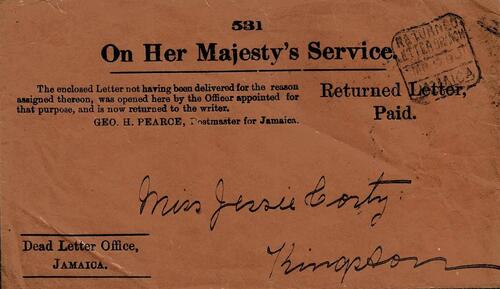 531
On Her Majesty's Service.
The enclosed Letter not having been delivered for the reason
assigned thereon, was opened here by the Officer appointed for
that purpose, and is now returned to the writer.
GEO. H. PEARCE, Postmaster for Jamaica.
Returned Letter,
Paid.
RETURNED
LETTER BRANCH
JAMAICA
Miss Jessie Corty
Kingston
Dead Letter Office,
JAMAICA.